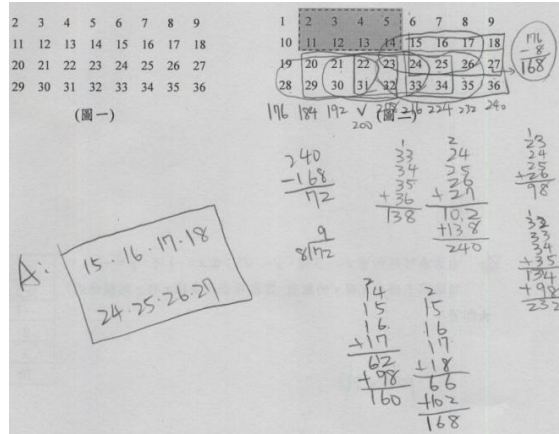 2 3 4 5 6 7 8 9
11 12 13 14 15 16 17 18
20 21 22 23 24 25 26 27
29 30 31 32 33 34 35 36
(圖一)
1 2 3 4 5 6 7 8 9
10 11 12 13 14 15 16 17 18
19 20 21 22 23 24 25 26 27
28 29 30 31 32 33 34 35 36
(圖二)
176 184 192 200 208 216 224 232 240
176
-8
168
240
-168
72
9
8)72
33
34
35
+36
138
2
24
25
26
+27
102
+138
240
23
24
25
+26
98
32
33
34
+35
134
+98
232
A:
15·16·17·18
24·25·26·27
14
15
16
+17
62
+98
160
2
15
16
17
+18
66
+102
168